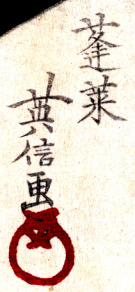 蓬莱
英信画